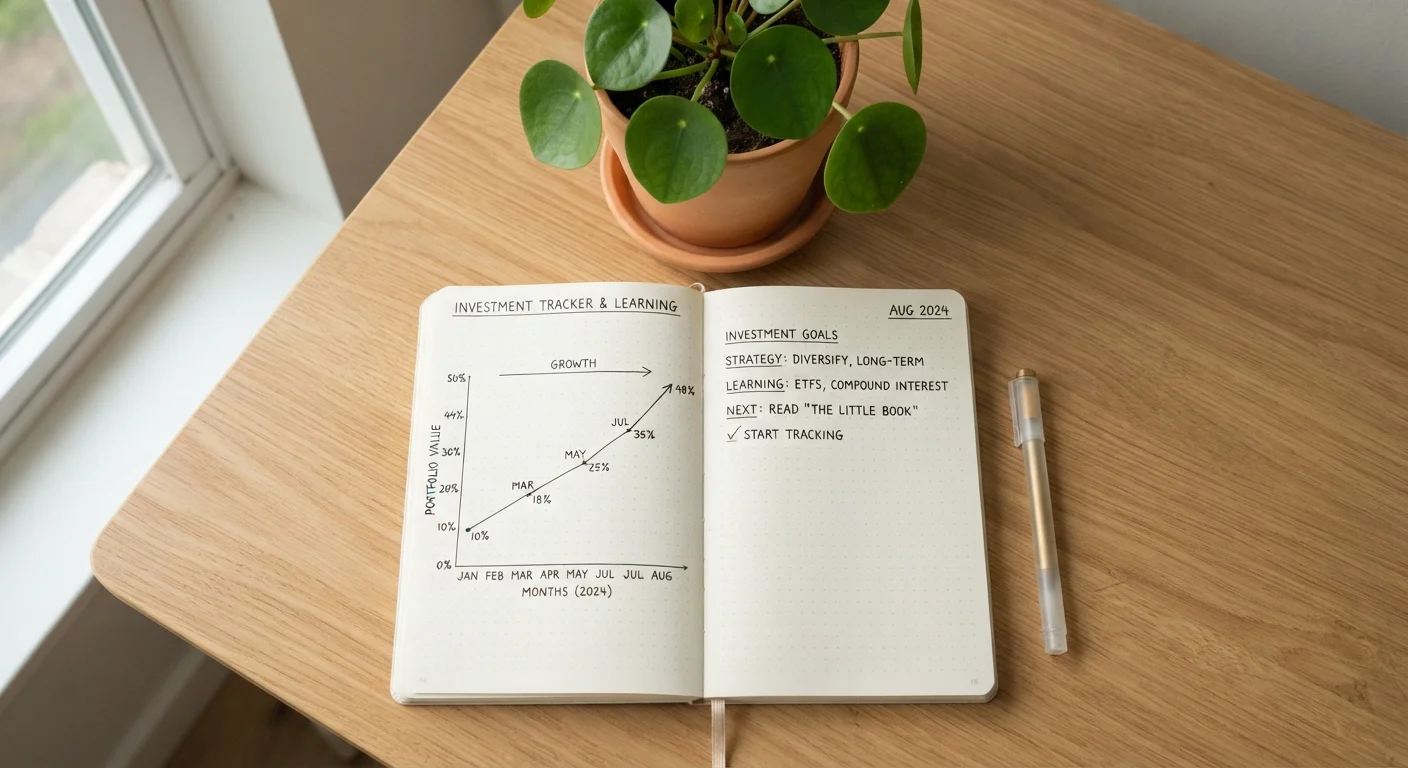 INVESTMENT TRACKER & LEARNING
GROWTH
50%
44%
30%
20%
10%
0%
PORTFOLIO VALUE
10%
MAR
18%
MAY
25%
JUL
35%
48%
JAN FEB MAR APR MAY JUL JUL AUG
MONTHS (2024)
AUG 2024
INVESTMENT GOALS
STRATEGY: DIVERSIFY, LONG-TERM
LEARNING: ETFS, COMPOUND INTEREST
NEXT: READ "THE LITTLE BOOK"
✓ START TRACKING